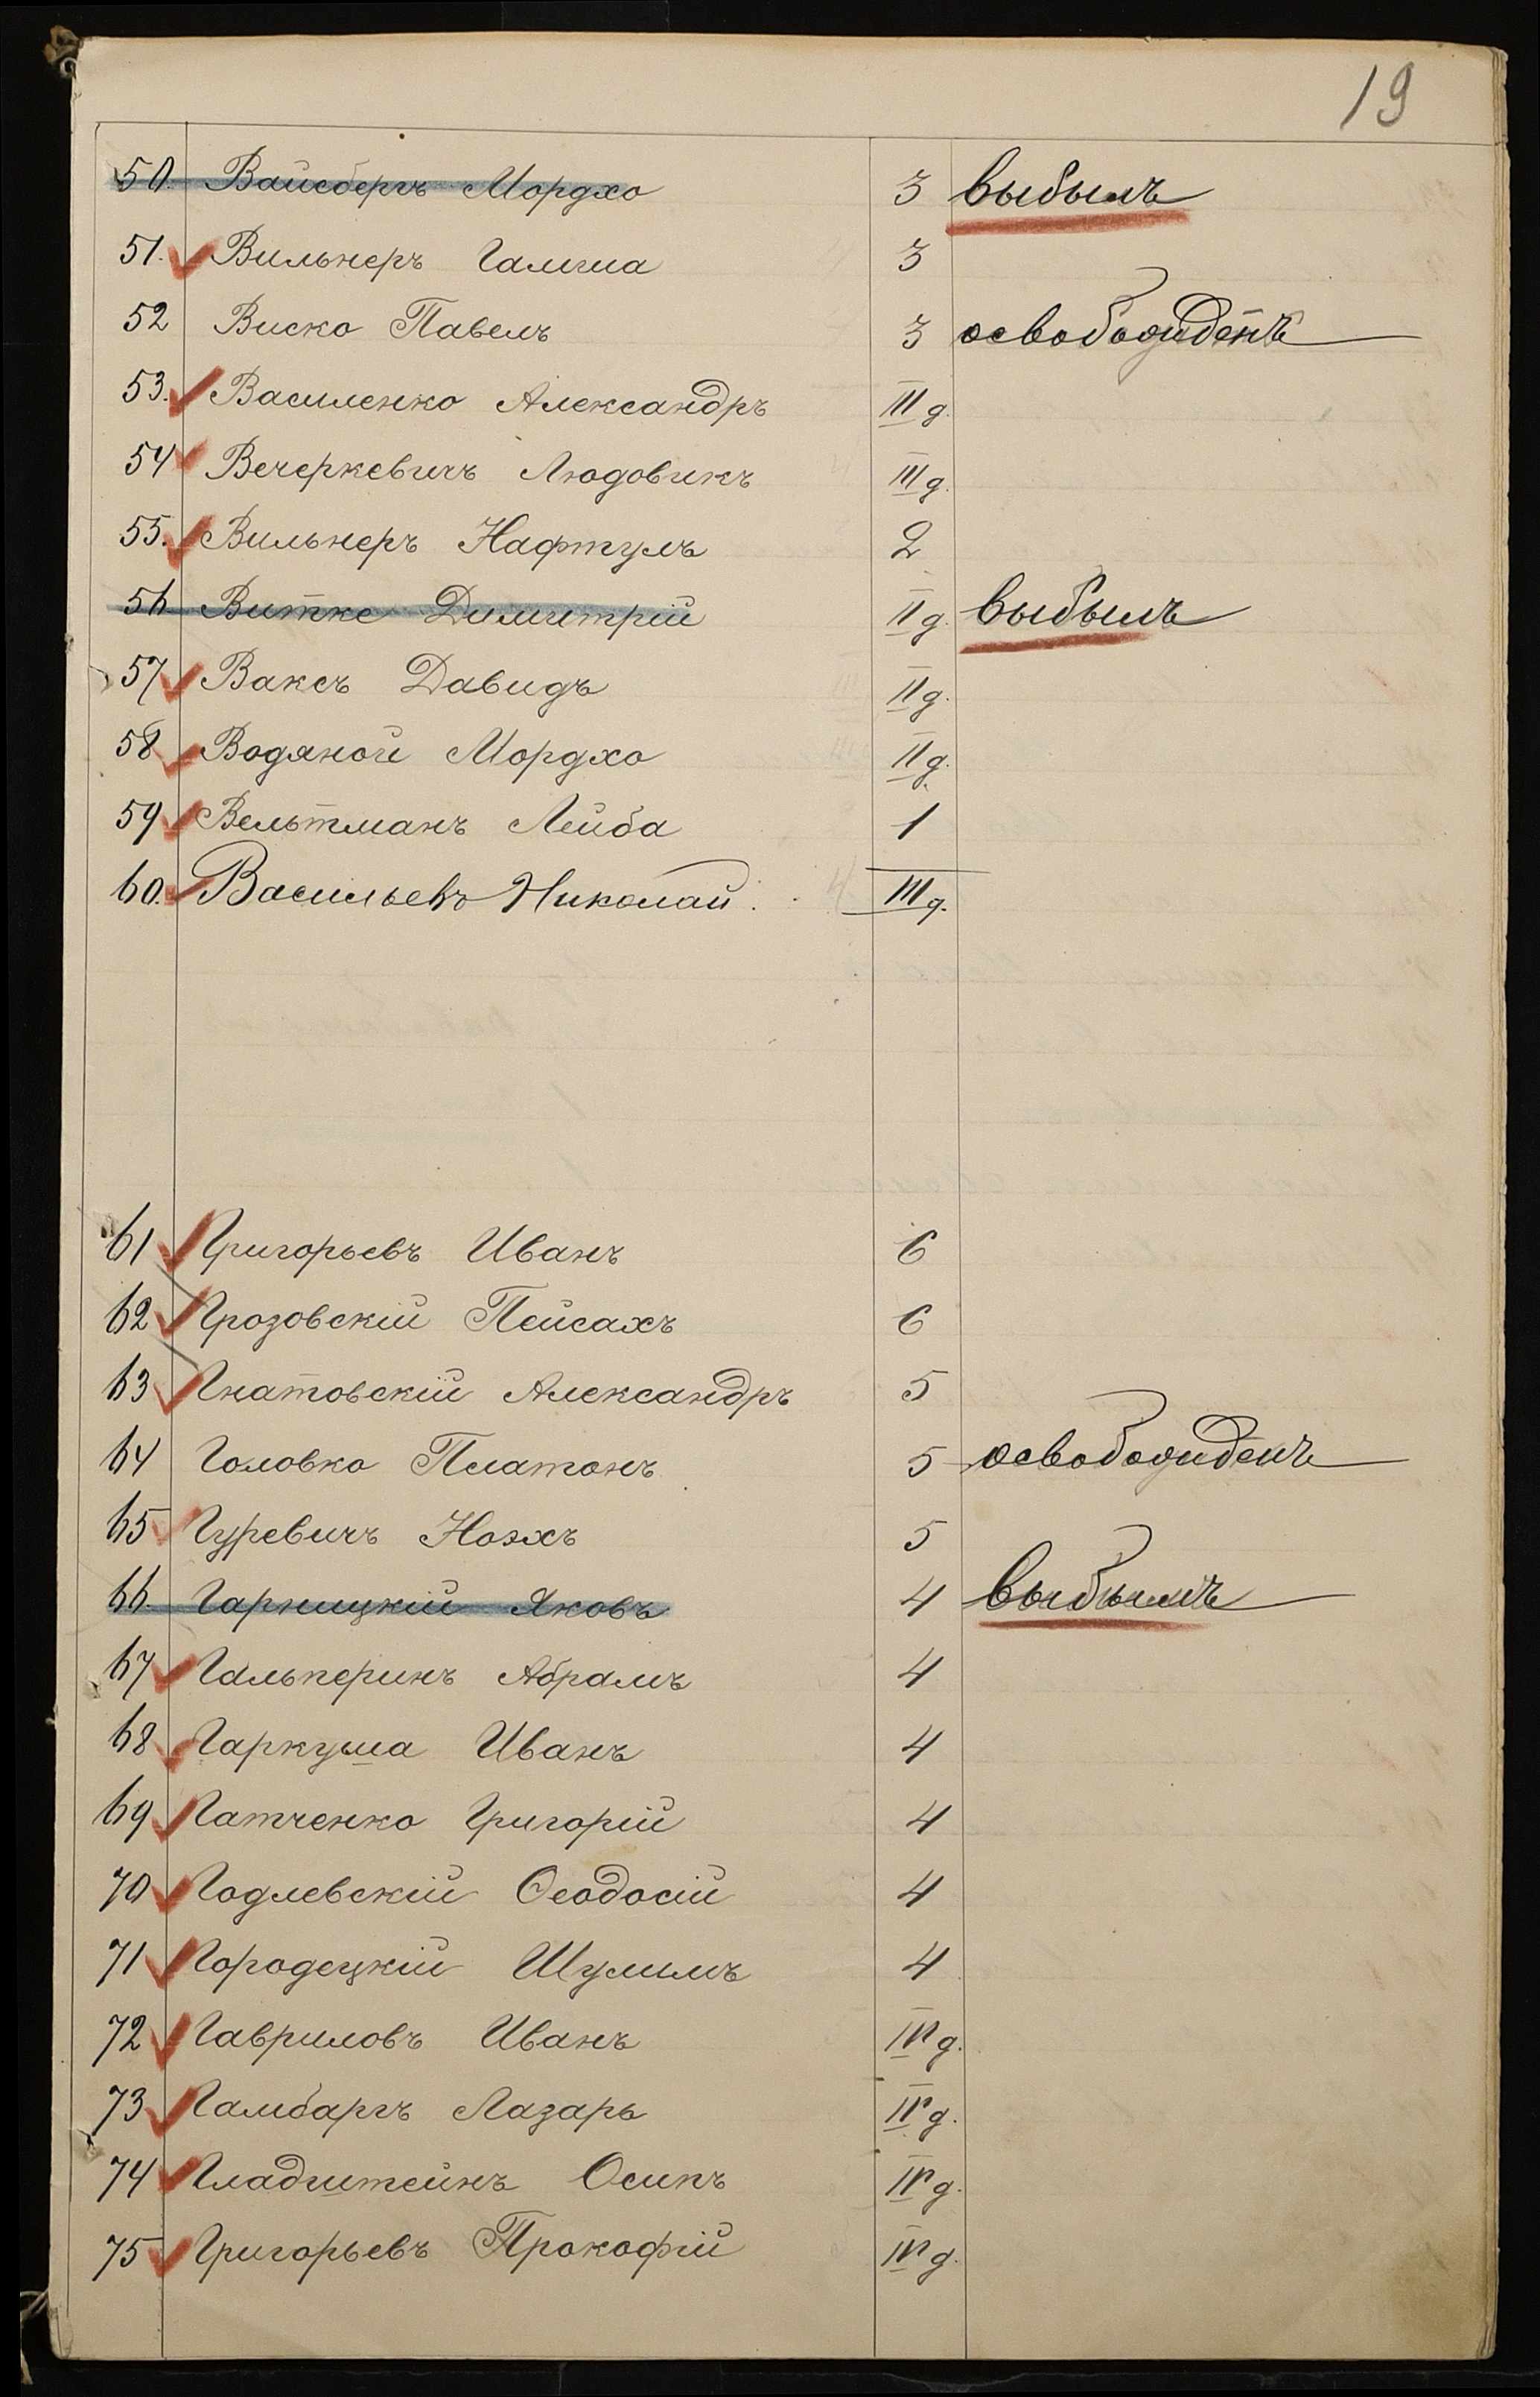 19
50. Вайсбергъ Мордхо 3 выбылъ
51. Вильнеръ Гамша 3
52 Виско Павелъ 3 освобожденъ
53. Василенко Александръ III д.
54 Вечеркевичъ Людовикъ III д.
55. Вильнеръ Нафтулъ 2
56 Витке Димитрій II д. выбылъ
57 Ваксъ Давидъ II д.
58 Водяной Мордхо II д.
59 Вельтманъ Лейба 1
60. Васильевъ Николай. III д.
61 Григорьевъ Иванъ 6
62 Грозовскій Пейсахъ 6
63 Гнатовскій Александръ 5
64 Головко Платонъ 5 освобожденъ
65 Гуревичъ Ноэхъ 5
66. Гарницкій Яковъ 4 выбылъ
67 Гальперинъ Абрамъ 4
68 Гаркуша Иванъ 4
69 Гатченко Григорій 4
70 Годлевскій Ѳеодосій 4
71 Городецкій Шулимъ 4
72 Гавриловъ Иванъ IV д.
73 Гамбаргъ Лазарь IV д.
74 Гладштейнъ Осипъ IV д.
75 Григорьевъ Прокофій IV д.